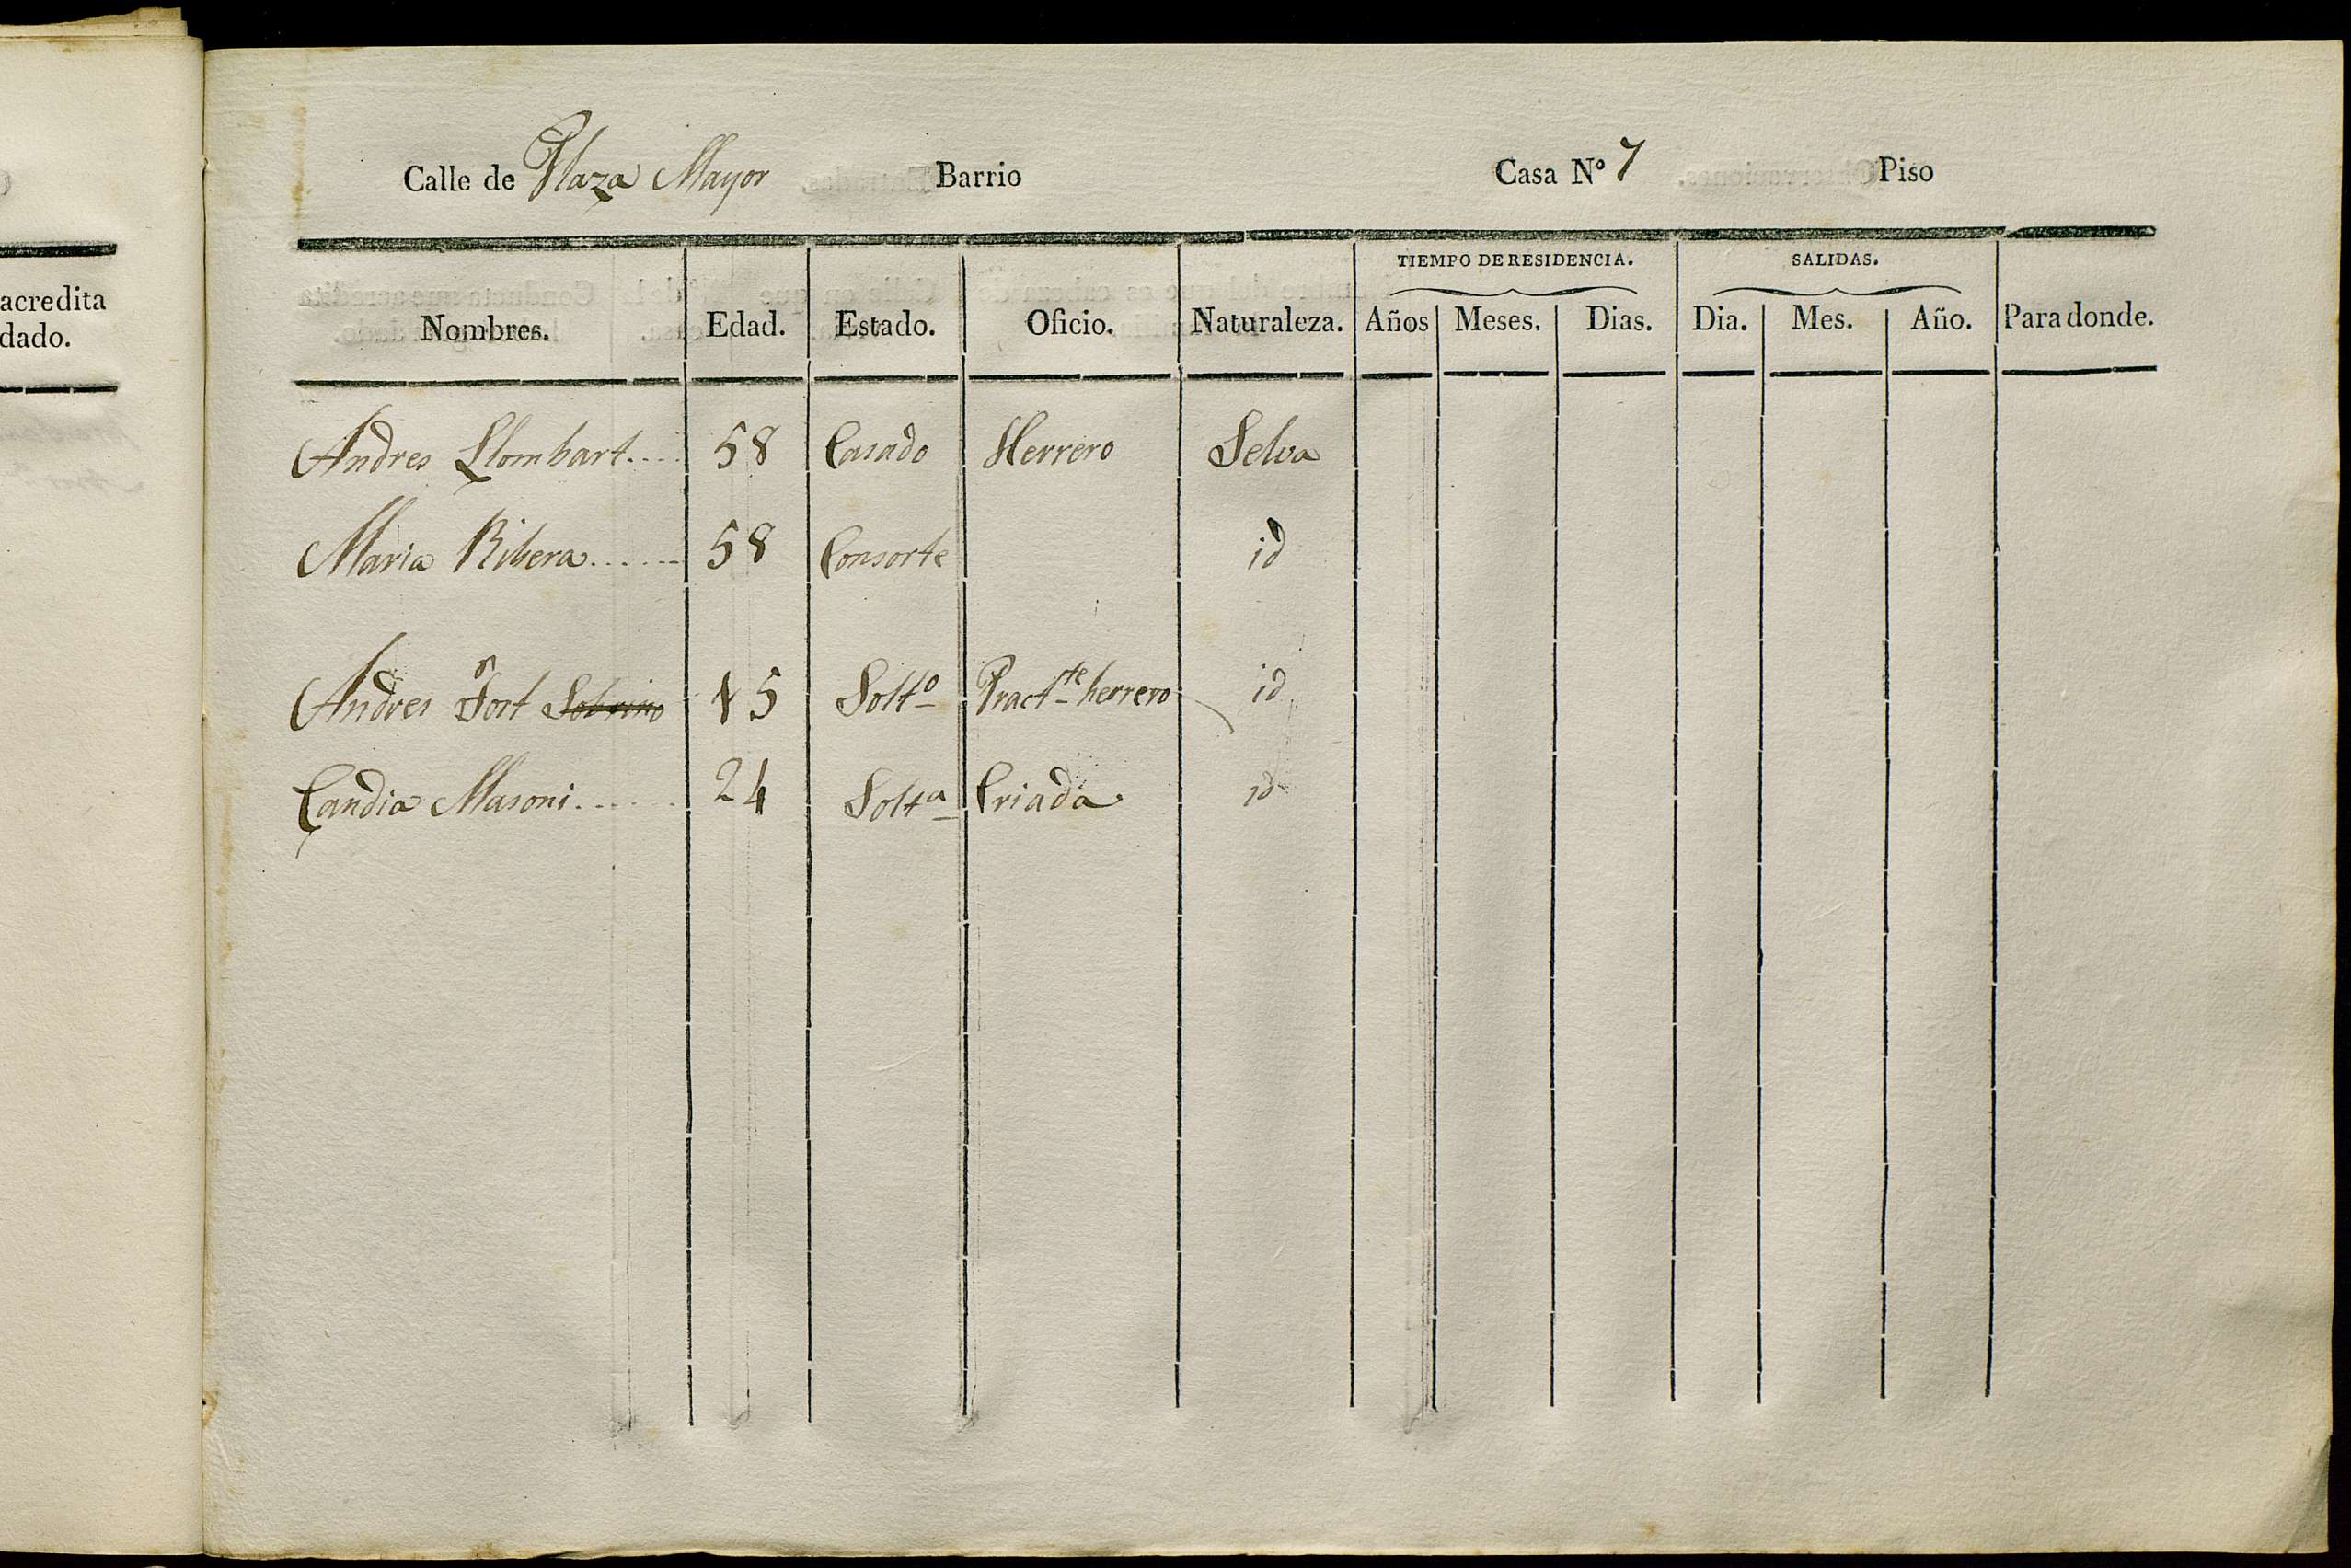 acredita
dado.
Calle de Plaza Mayor Barrio Casa Nº 7 Piso
TIEMPO DE RESIDENCIA. SALIDAS.
Nombres. Edad. Estado. Oficio. Naturaleza. Años Meses. Dias. Dia. Mes. Año. Para donde.
Andres Llombart.... 58 Casado Herrero Selva
Maria Ribera...... 58 Consorte id
Andres Fort Sobrino 15 Solt.º Pract.te herrero id
Candia Masoni...... 24 Solt.a Criada id